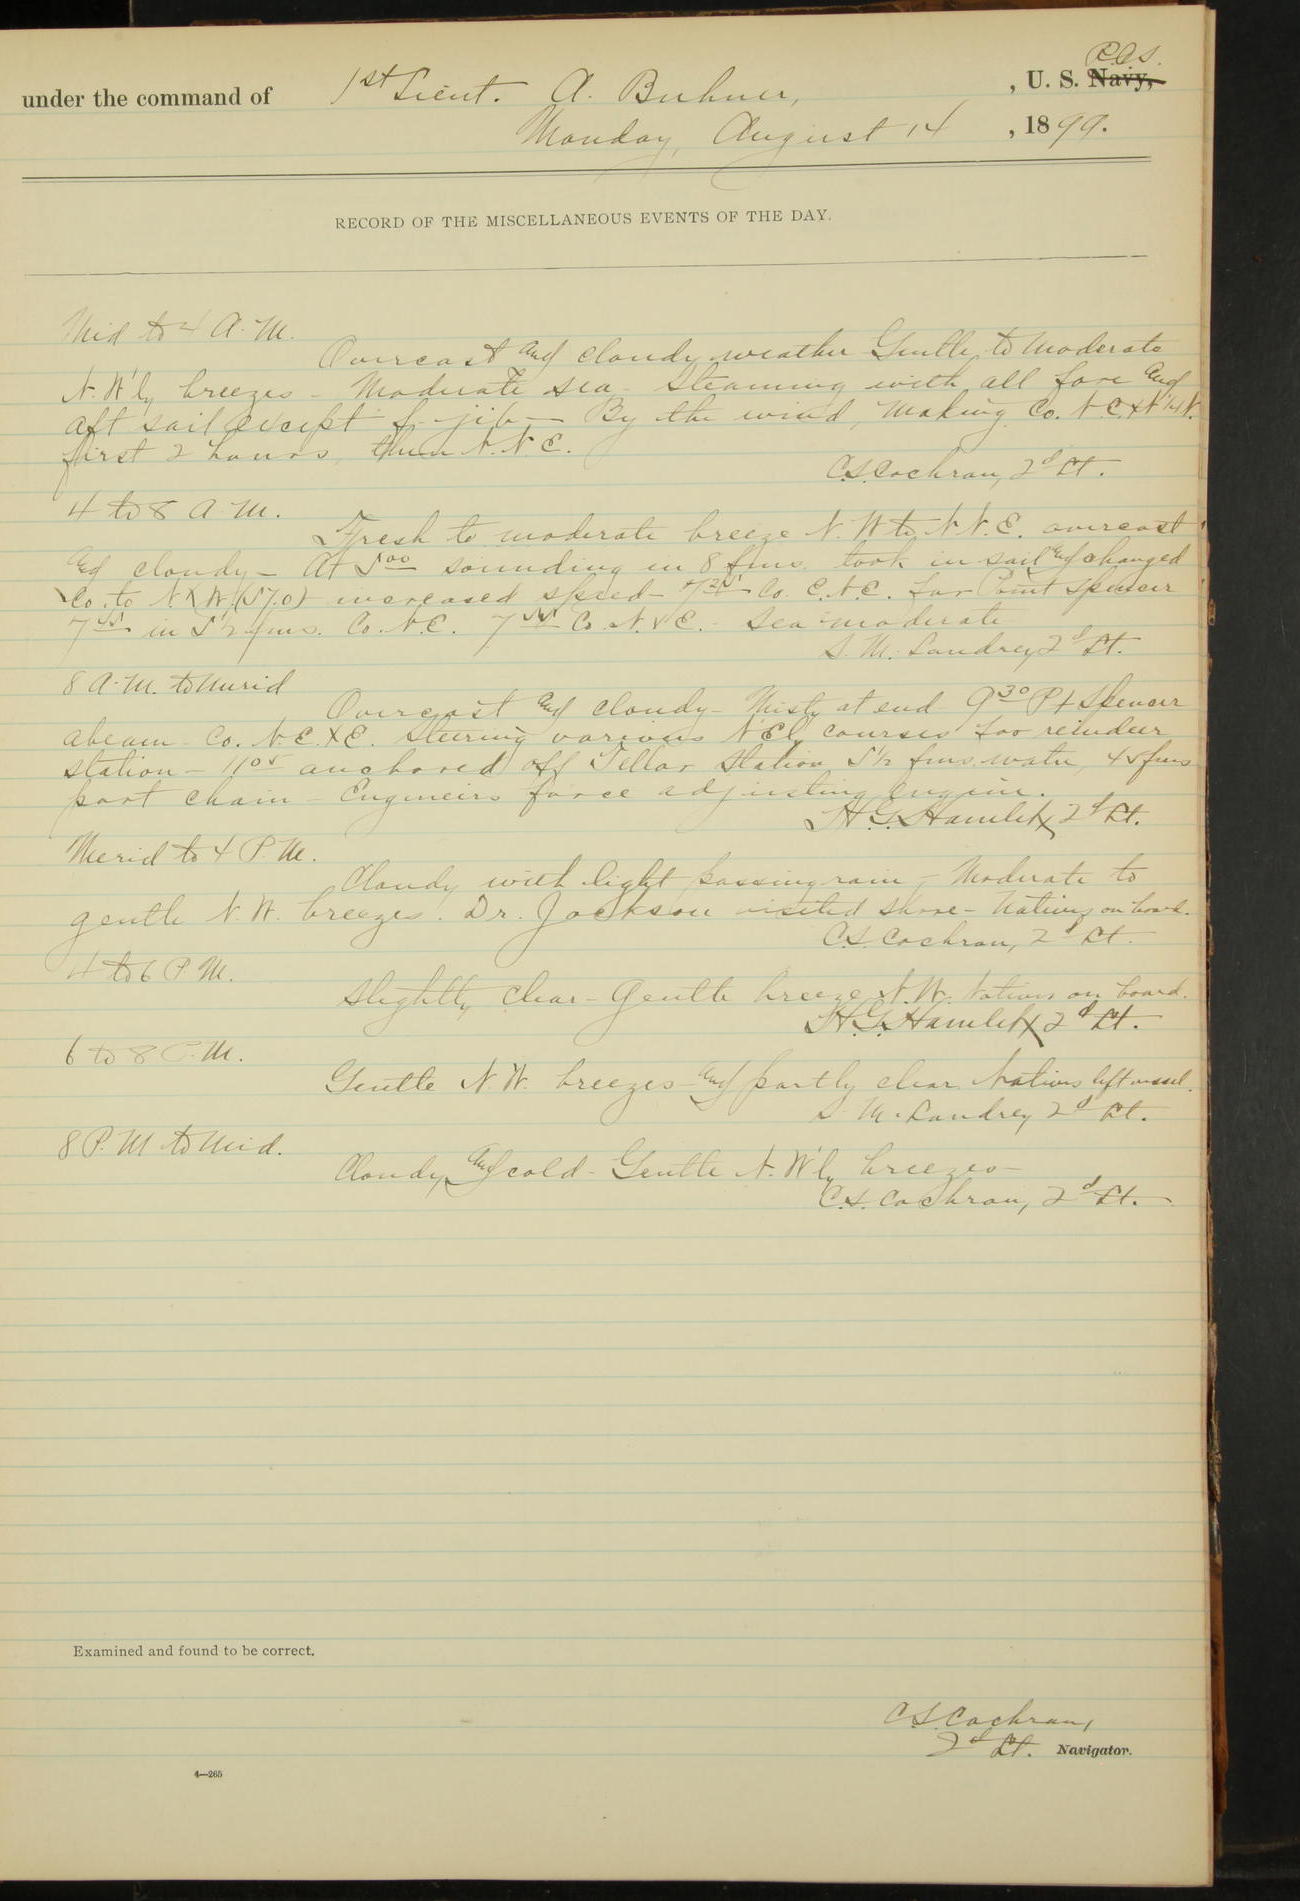 R.C.S.
under the command of 1st Lieut. A. Buhner, , U. S. Navy,
Monday, August 14 , 1899.
RECORD OF THE MISCELLANEOUS EVENTS OF THE DAY.
Mid to 4 A. M.
Overcast and cloudy weather Gentle to moderate
N. W'ly breezes - Moderate sea - Steaming with all fore and
aft sail except f. jib - By the wind, making Co. N E x N 1/4 N.
first 2 hours, then N. N. E.
C.S. Cochran, 2d Lt.
4 to 8 A. M.
Fresh to moderate breeze N. W to N N. E. overcast
and cloudy - At 5 00 sounding in 8 fms. took in sail and changed
Co. to N. x W (57.0) increased speed - 7 25 Co. E. N. E. for Point Spencer
in 5 1/2 fms. Co. N. E. 7 55 Co. N. x E. - Sea moderate
S. M. Landrey 2d Lt.
8 A. M. to Merid
Overcast and cloudy - Misty at end 9 30 Pt Spencer
abeam - Co. N. E. x E. Steering various N'E'ly courses for reindeer
station - 11 05 anchored off Teller Station 5 1/2 fms. water, 45 fms
port chain - Engineers force adjusting engine.
H. G. Hamlet, 2d Lt.
Merid to 4 P. M.
Cloudy with light passing rain - Moderate to
gentle N. W. breezes. Dr. Jackson visited shore - Natives on board.
C.S. Cochran, 2d Lt.
4 to 6 P. M.
Slightly clear - Gentle breeze N. W. Natives on board.
H. G. Hamlet, 2d Lt.
6 to 8 P. M.
Gentle N. W. breezes - and partly clear Natives left vessel.
S. M. Landrey 2d Lt.
8 P. M to Mid.
Cloudy and cold - Gentle N. W'ly breezes -
C.S. Cochran, 2d Lt.
Examined and found to be correct.
C.S. Cochran,
2d Lt. Navigator.
4—265